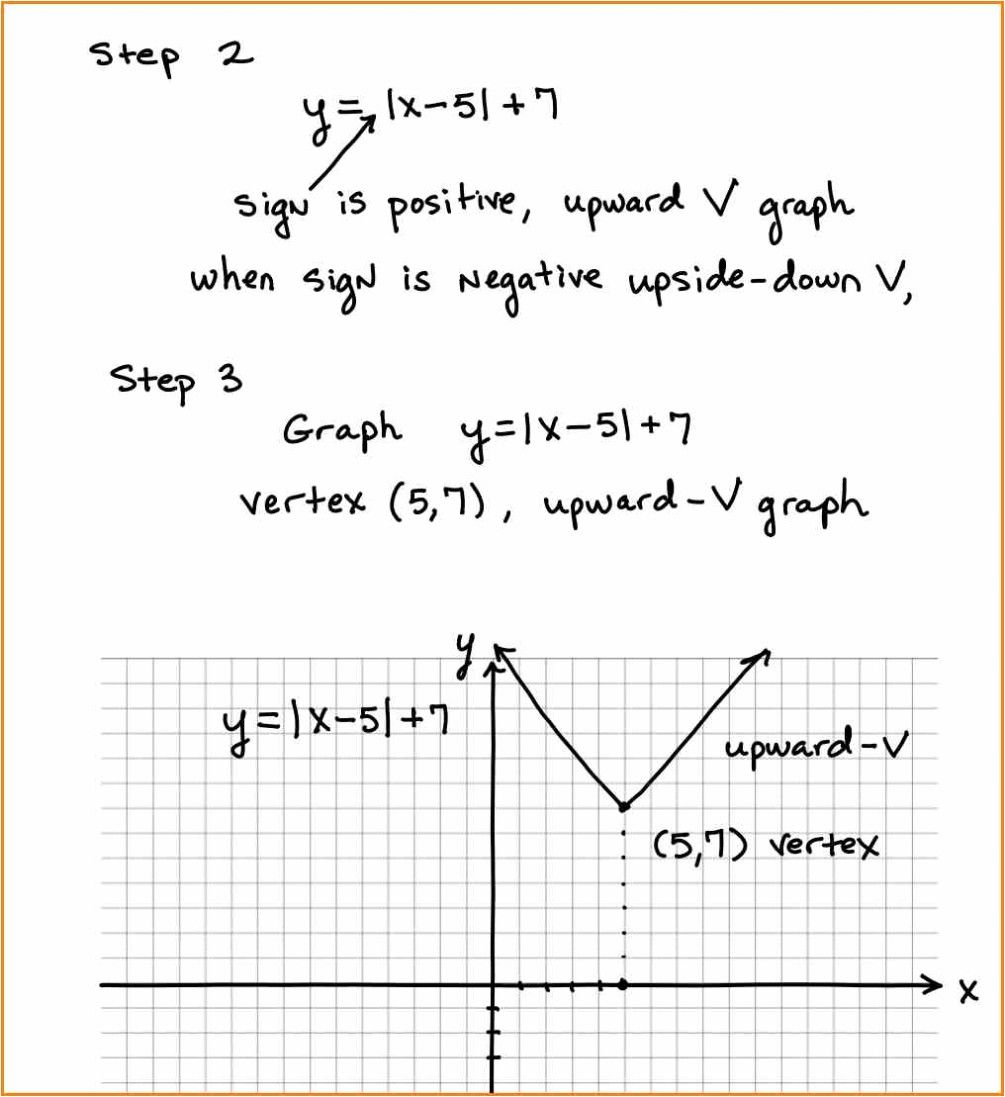 Step 2
y = |x-5| + 7
sign is positive, upward V graph
when sign is negative upside-down V,
Step 3
Graph y=|x-5|+7
vertex (5,7), upward-V graph
y
y=|x-5|+7
upward-V
(5,7) vertex
x